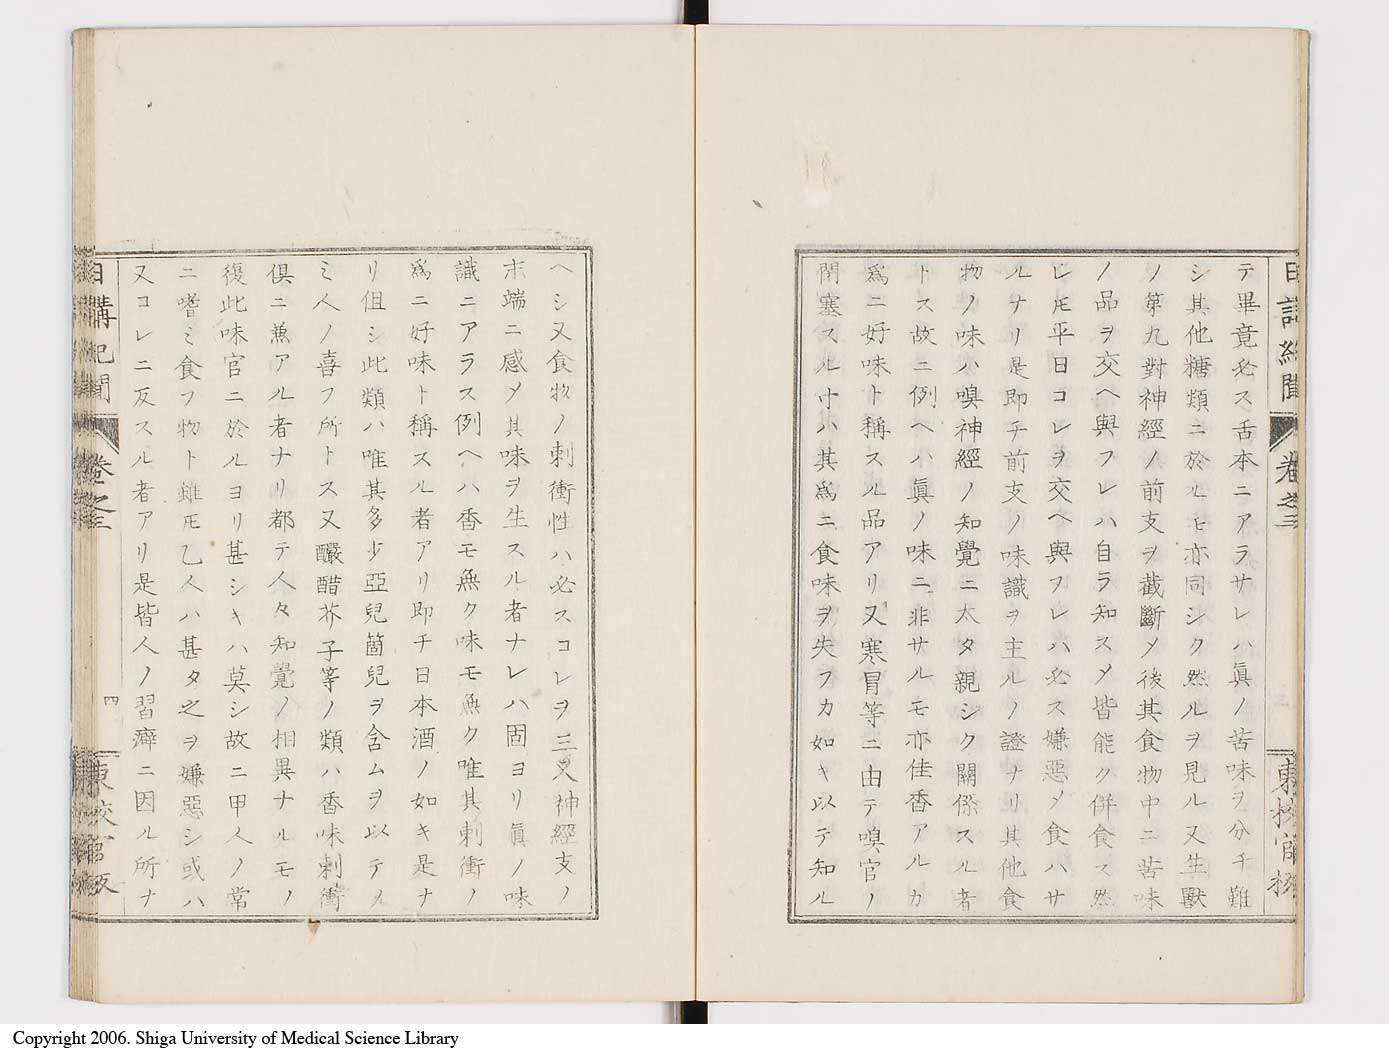 日講紀聞 巻之三 東校官板
テ畢竟必ス舌本ニアラサレハ眞ノ苦味ヲ分チ難
シ其他糖類ニ於ルモ亦同シク然ルヲ見ル又生獸
ノ第九對神經ノ前支ヲ截斷メ後其食物中ニ苦味
ノ品ヲ交ヘ與フレハ自ラ知スメ皆能ク併食ス然
レ𪜈平日コレヲ交ヘ與フレハ必ス嫌惡メ食ハサ
ルナリ是即チ前支ノ味識ヲ主ルノ證ナリ其他食
物ノ味ハ嗅神經ノ知覺ニ太タ親シク關係スル者
トス故ニ例ヘハ眞ノ味ニ非サルモ亦佳香アルカ
爲ニ好味ト稱スル品アリ又寒冒等ニ由テ嗅官ノ
閉塞スル寸ハ其爲ニ食味ヲ失フカ如キ以テ知ル
ヘシ又食物ノ刺衝性ハ必スコレヲ三叉神經支ノ
末端ニ感メ其味ヲ生スル者ナレハ固ヨリ眞ノ味
識ニアラス例ヘハ香モ無ク味モ無ク唯其刺衝ノ
爲ニ好味ト稱スル者アリ即チ日本酒ノ如キ是ナ
リ但シ此類ハ唯其多少亞兒箇兒ヲ含ムヲ以テメ
ミ人ノ喜フ所トス又釅醋芥子等ノ類ハ香味刺衝
倶ニ兼アル者ナリ都テ人々知覺ノ相異ナルモノ
復此味官ニ於ルヨリ甚シキハ莫シ故ニ甲人ノ常
ニ嗜ミ食フ物ト雖𪜈乙人ハ甚タ之ヲ嫌惡シ或ハ
又コレニ反スル者アリ是皆人ノ習癖ニ因ル所ナ
日講紀聞 巻之三 四 東校官板
Copyright 2006. Shiga University of Medical Science Library